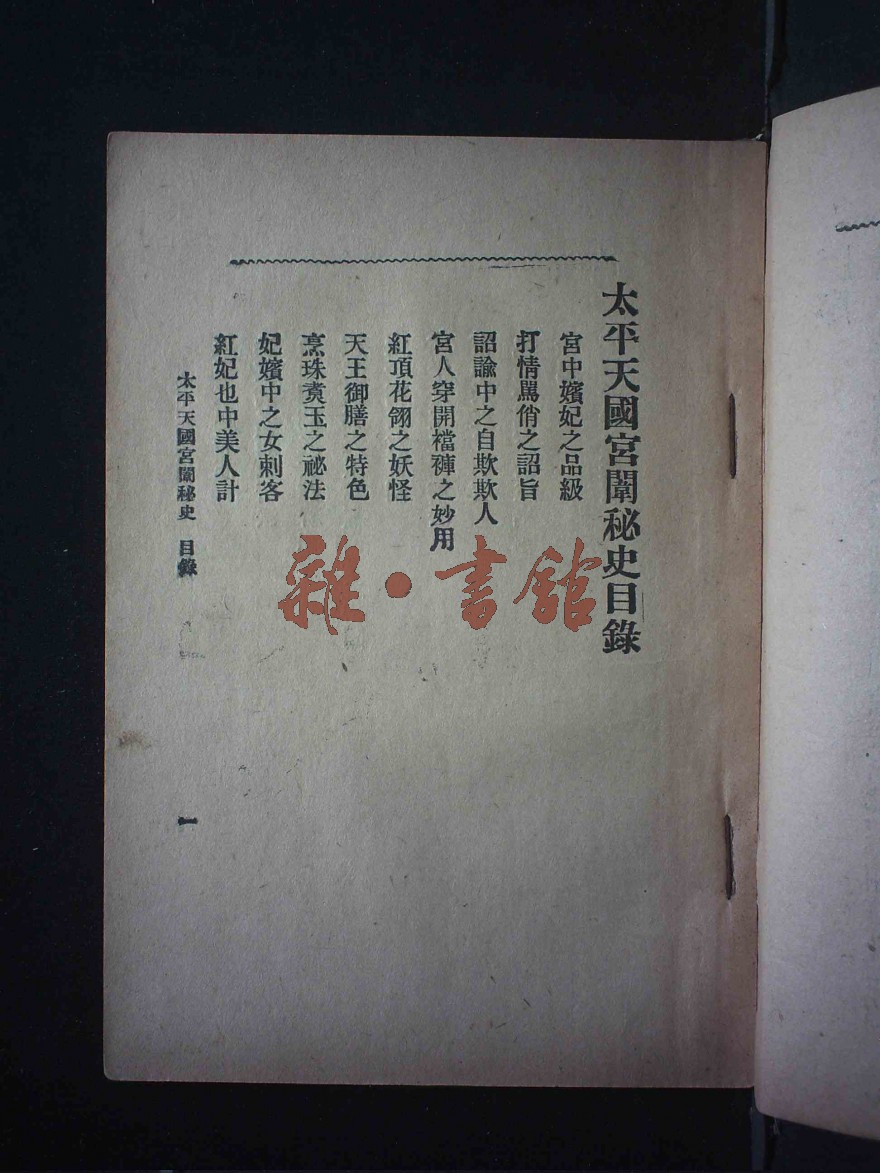 太平天國宮闈秘史目錄
宮中嬪妃之品級
打情罵俏之詔旨
詔諭中之自欺欺人
宮人穿開襠褲之妙用
紅頂花翎之妖怪
天王御膳之特色
烹珠煑玉之祕法
妃嬪中之女刺客
紅妃也中美人計
太平天國宮闈秘史 目錄
一
雜·書館